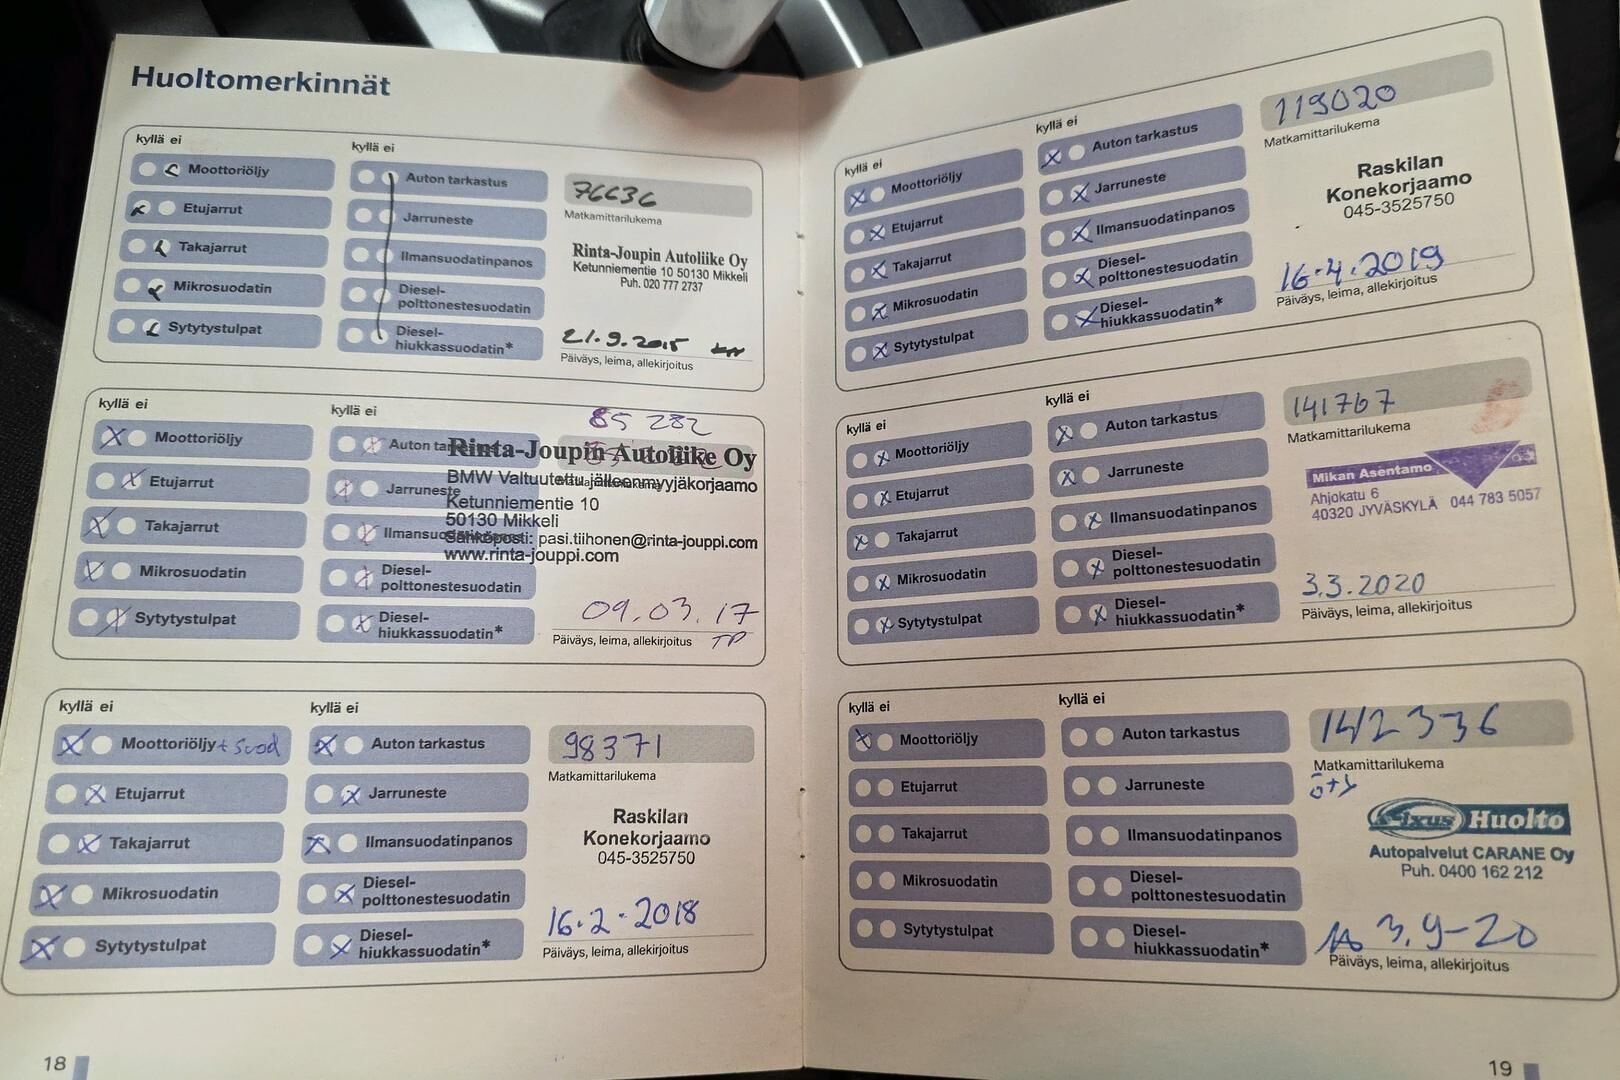 Huoltomerkinnät
kyllä ei
Moottoriöljy
Etujarrut
Takajarrut
Mikrosuodatin
Sytytystulpat
kyllä ei
Auton tarkastus
Jarruneste
Ilmansuodatinpanos
Diesel-
polttonestesuodatin
Diesel-
hiukkassuodatin*
76636
Matkamittarilukema
Rinta-Joupin Autoliike Oy
Ketunniementie 10 50130 Mikkeli
Puh. 020 777 2737
21.9.2015
Päiväys, leima, allekirjoitus
kyllä ei
Moottoriöljy
Etujarrut
Takajarrut
Mikrosuodatin
Sytytystulpat
kyllä ei
Auton
Jarruneste
Diesel-
polttonestesuodatin
Diesel-
hiukkassuodatin*
85 282
Rinta-Joupin Autoliike Oy
BMW Valtuutettu jälleenmyyjäkorjaamo
Ketunniementie 10
50130 Mikkeli
Sähköposti: pasi.tiihonen@rinta-jouppi.com
www.rinta-jouppi.com
09.03.17
Päiväys, leima, allekirjoitus TP
kyllä ei
Moottoriöljy + Suod
Etujarrut
Takajarrut
Mikrosuodatin
Sytytystulpat
kyllä ei
Auton tarkastus
Jarruneste
Ilmansuodatinpanos
Diesel-
polttonestesuodatin
Diesel-
hiukkassuodatin*
98371
Matkamittarilukema
Raskilan
Konekorjaamo
045-3525750
16.2.2018
Päiväys, leima, allekirjoitus
18
kyllä ei
Moottoriöljy
Etujarrut
Takajarrut
Mikrosuodatin
Sytytystulpat
kyllä ei
Auton tarkastus
Jarruneste
Ilmansuodatinpanos
Diesel-
polttonestesuodatin
Diesel-
hiukkassuodatin*
119020
Matkamittarilukema
Raskilan
Konekorjaamo
045-3525750
16.4.2019
Päiväys, leima, allekirjoitus
kyllä ei
Moottoriöljy
Etujarrut
Takajarrut
Mikrosuodatin
Sytytystulpat
kyllä ei
Auton tarkastus
Jarruneste
Ilmansuodatinpanos
Diesel-
polttonestesuodatin
Diesel-
hiukkassuodatin*
141767
Matkamittarilukema
Mikan Asentamo
Ahjokatu 6
40320 JYVÄSKYLÄ 044 783 5057
3.3.2020
Päiväys, leima, allekirjoitus
kyllä ei
Moottoriöljy
Etujarrut
Takajarrut
Mikrosuodatin
Sytytystulpat
kyllä ei
Auton tarkastus
Jarruneste
Ilmansuodatinpanos
Diesel-
polttonestesuodatin
Diesel-
hiukkassuodatin*
142336
Matkamittarilukema
ö+s
Fixus Huolto
Autopalvelut CARANE Oy
Puh. 0400 162 212
3.9-20
Päiväys, leima, allekirjoitus
19